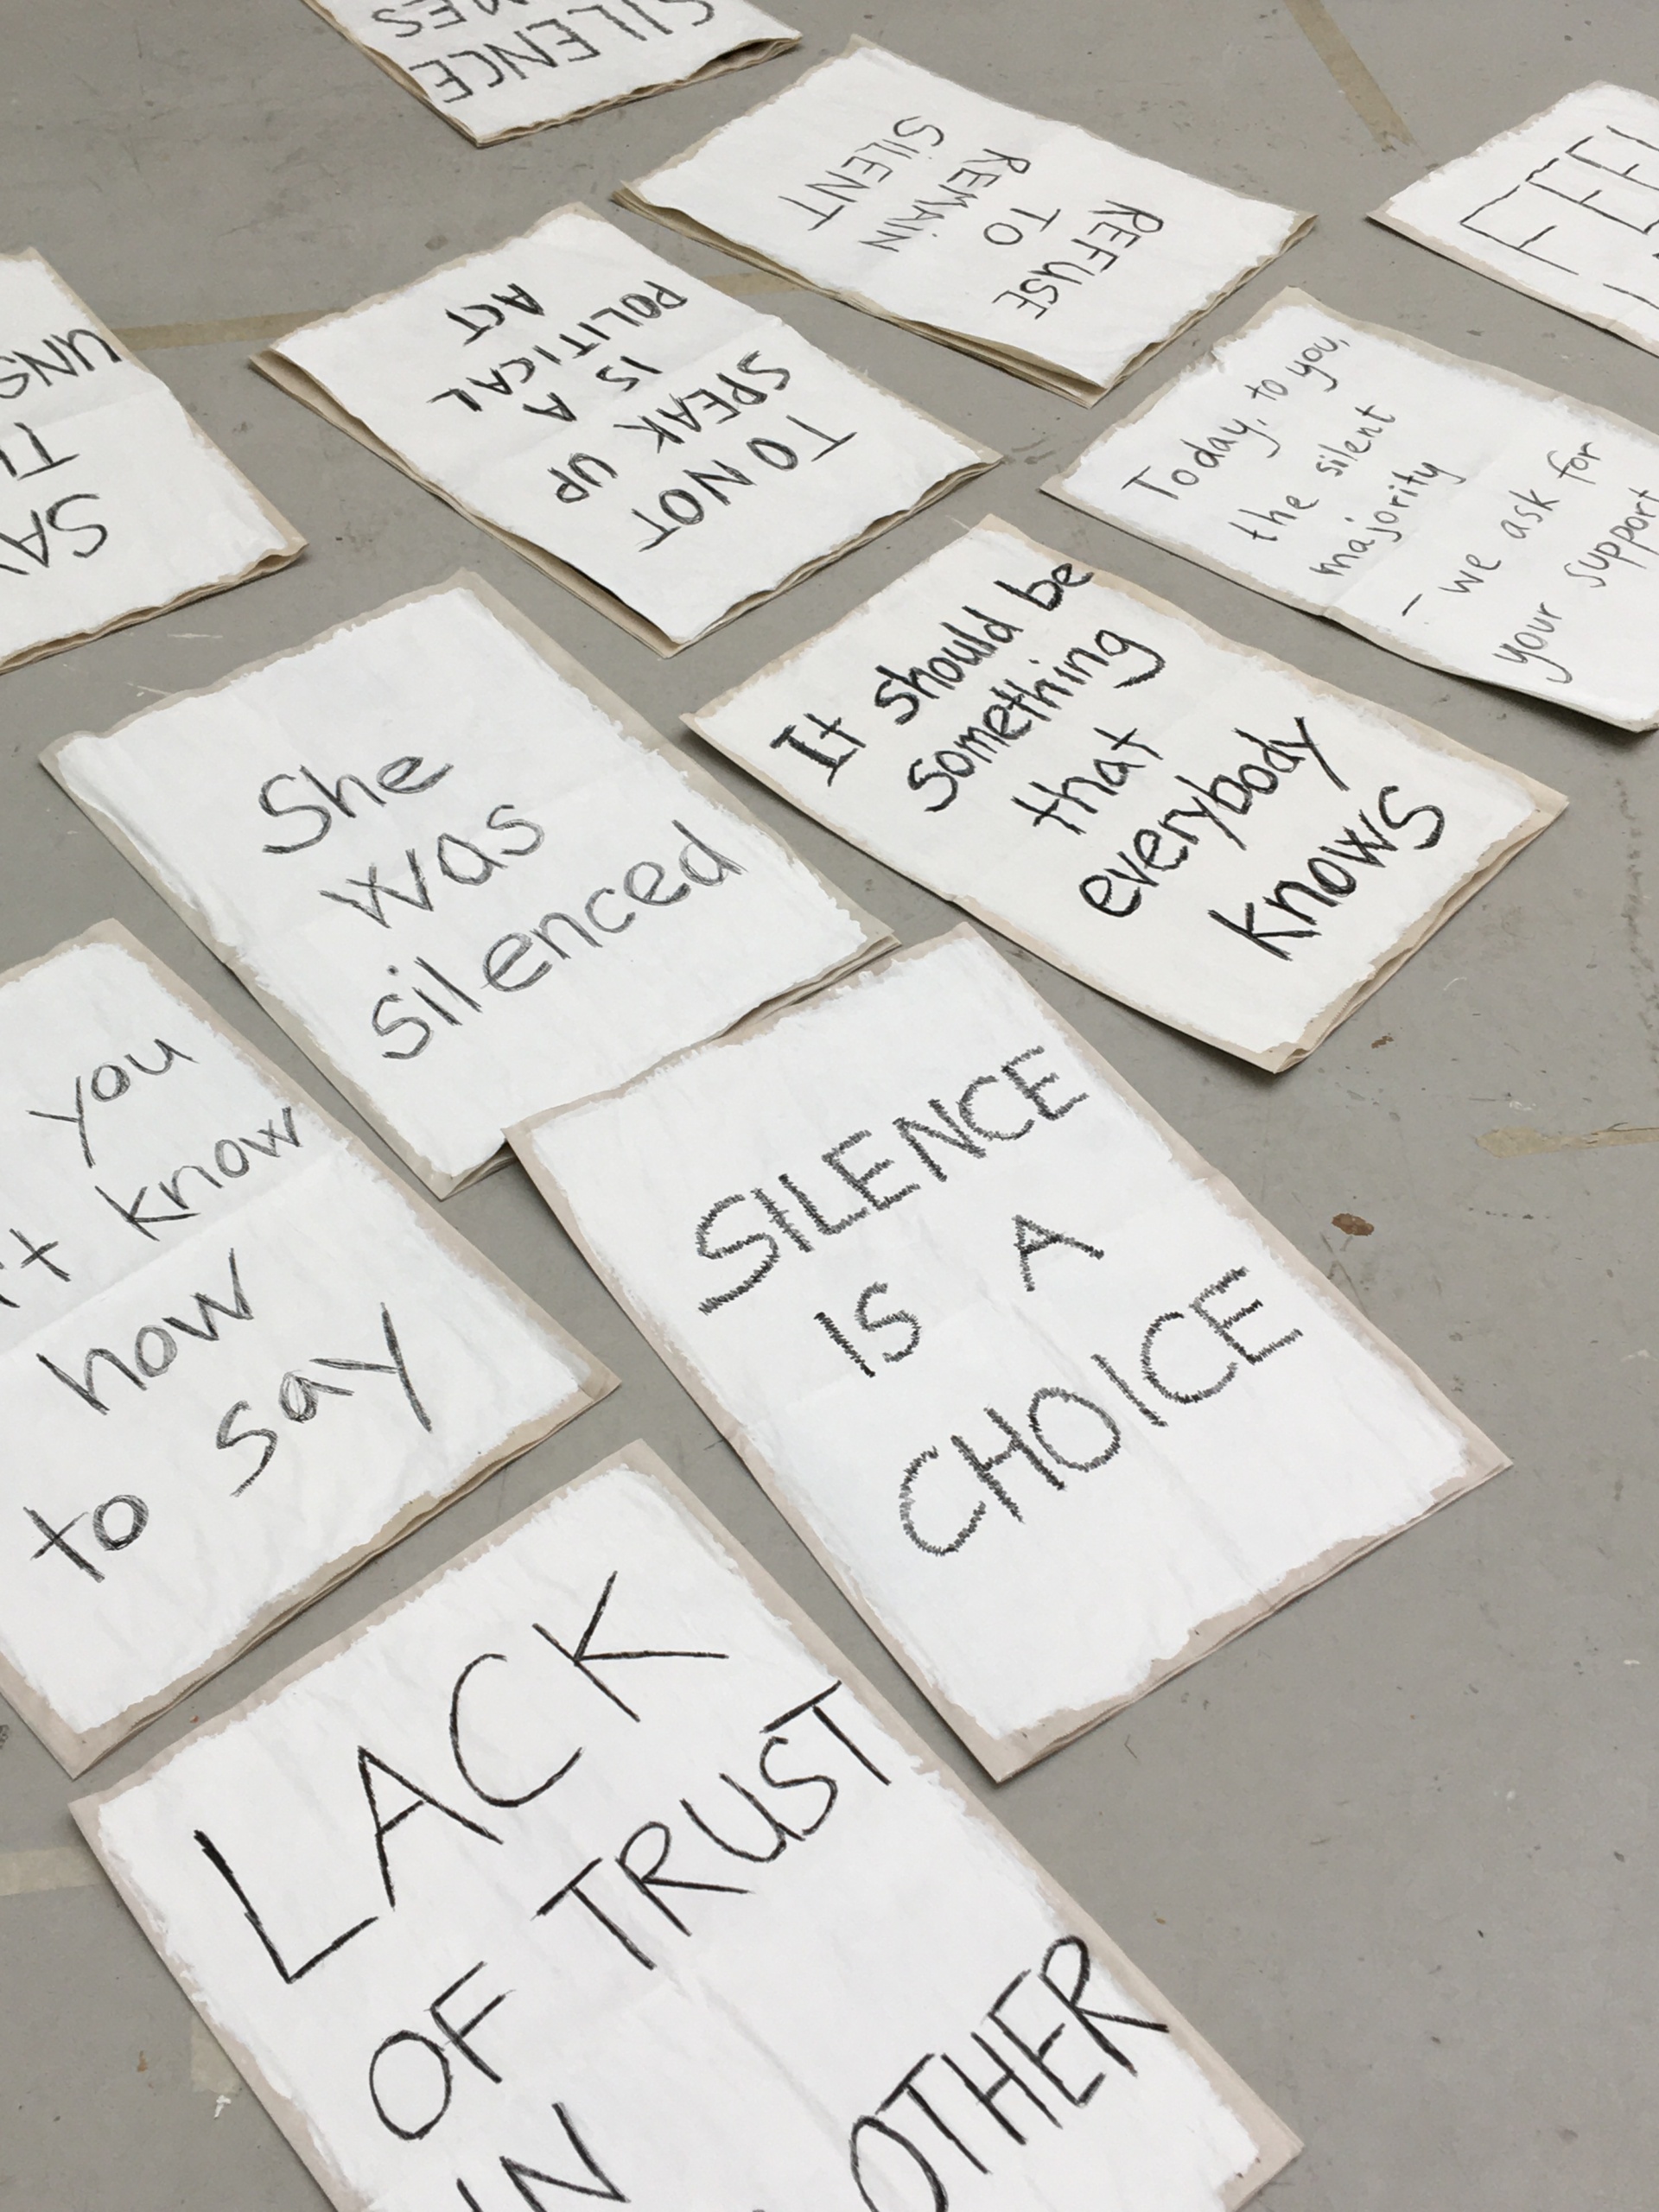 SILENCE
REFUSE
TO
REMAIN
SILENT
TO NOT
SPEAK UP
IS A
POLITICAL
ACT
Today, to you,
the silent
majority
- we ask for
your support
It should be
something
that
everybody
knows
She
was
silenced
you
know
how
to say
SILENCE
IS A
CHOICE
LACK
OF TRUST
IN OTHER